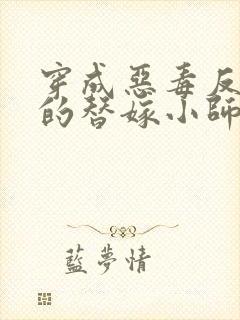 穿成惡毒反
的替嫁小師
藍夢情